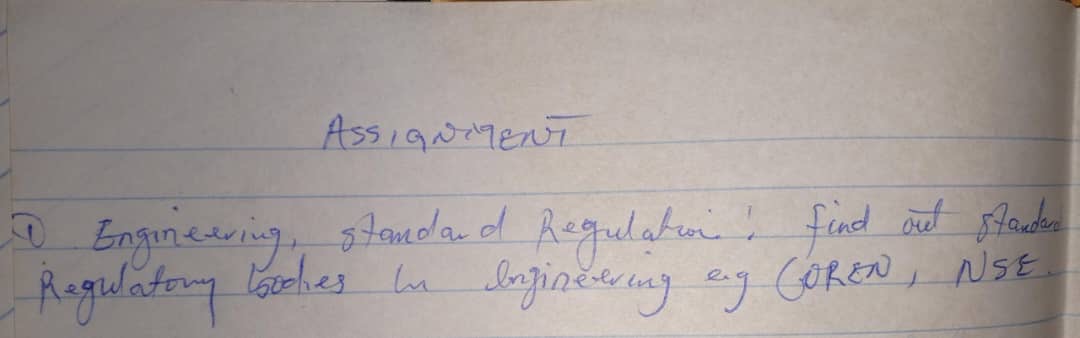 ASSIGNMENT
① Engineering, standard Regulation: find out standard
Regulatory bodies in engineering e.g COREN, NSE.